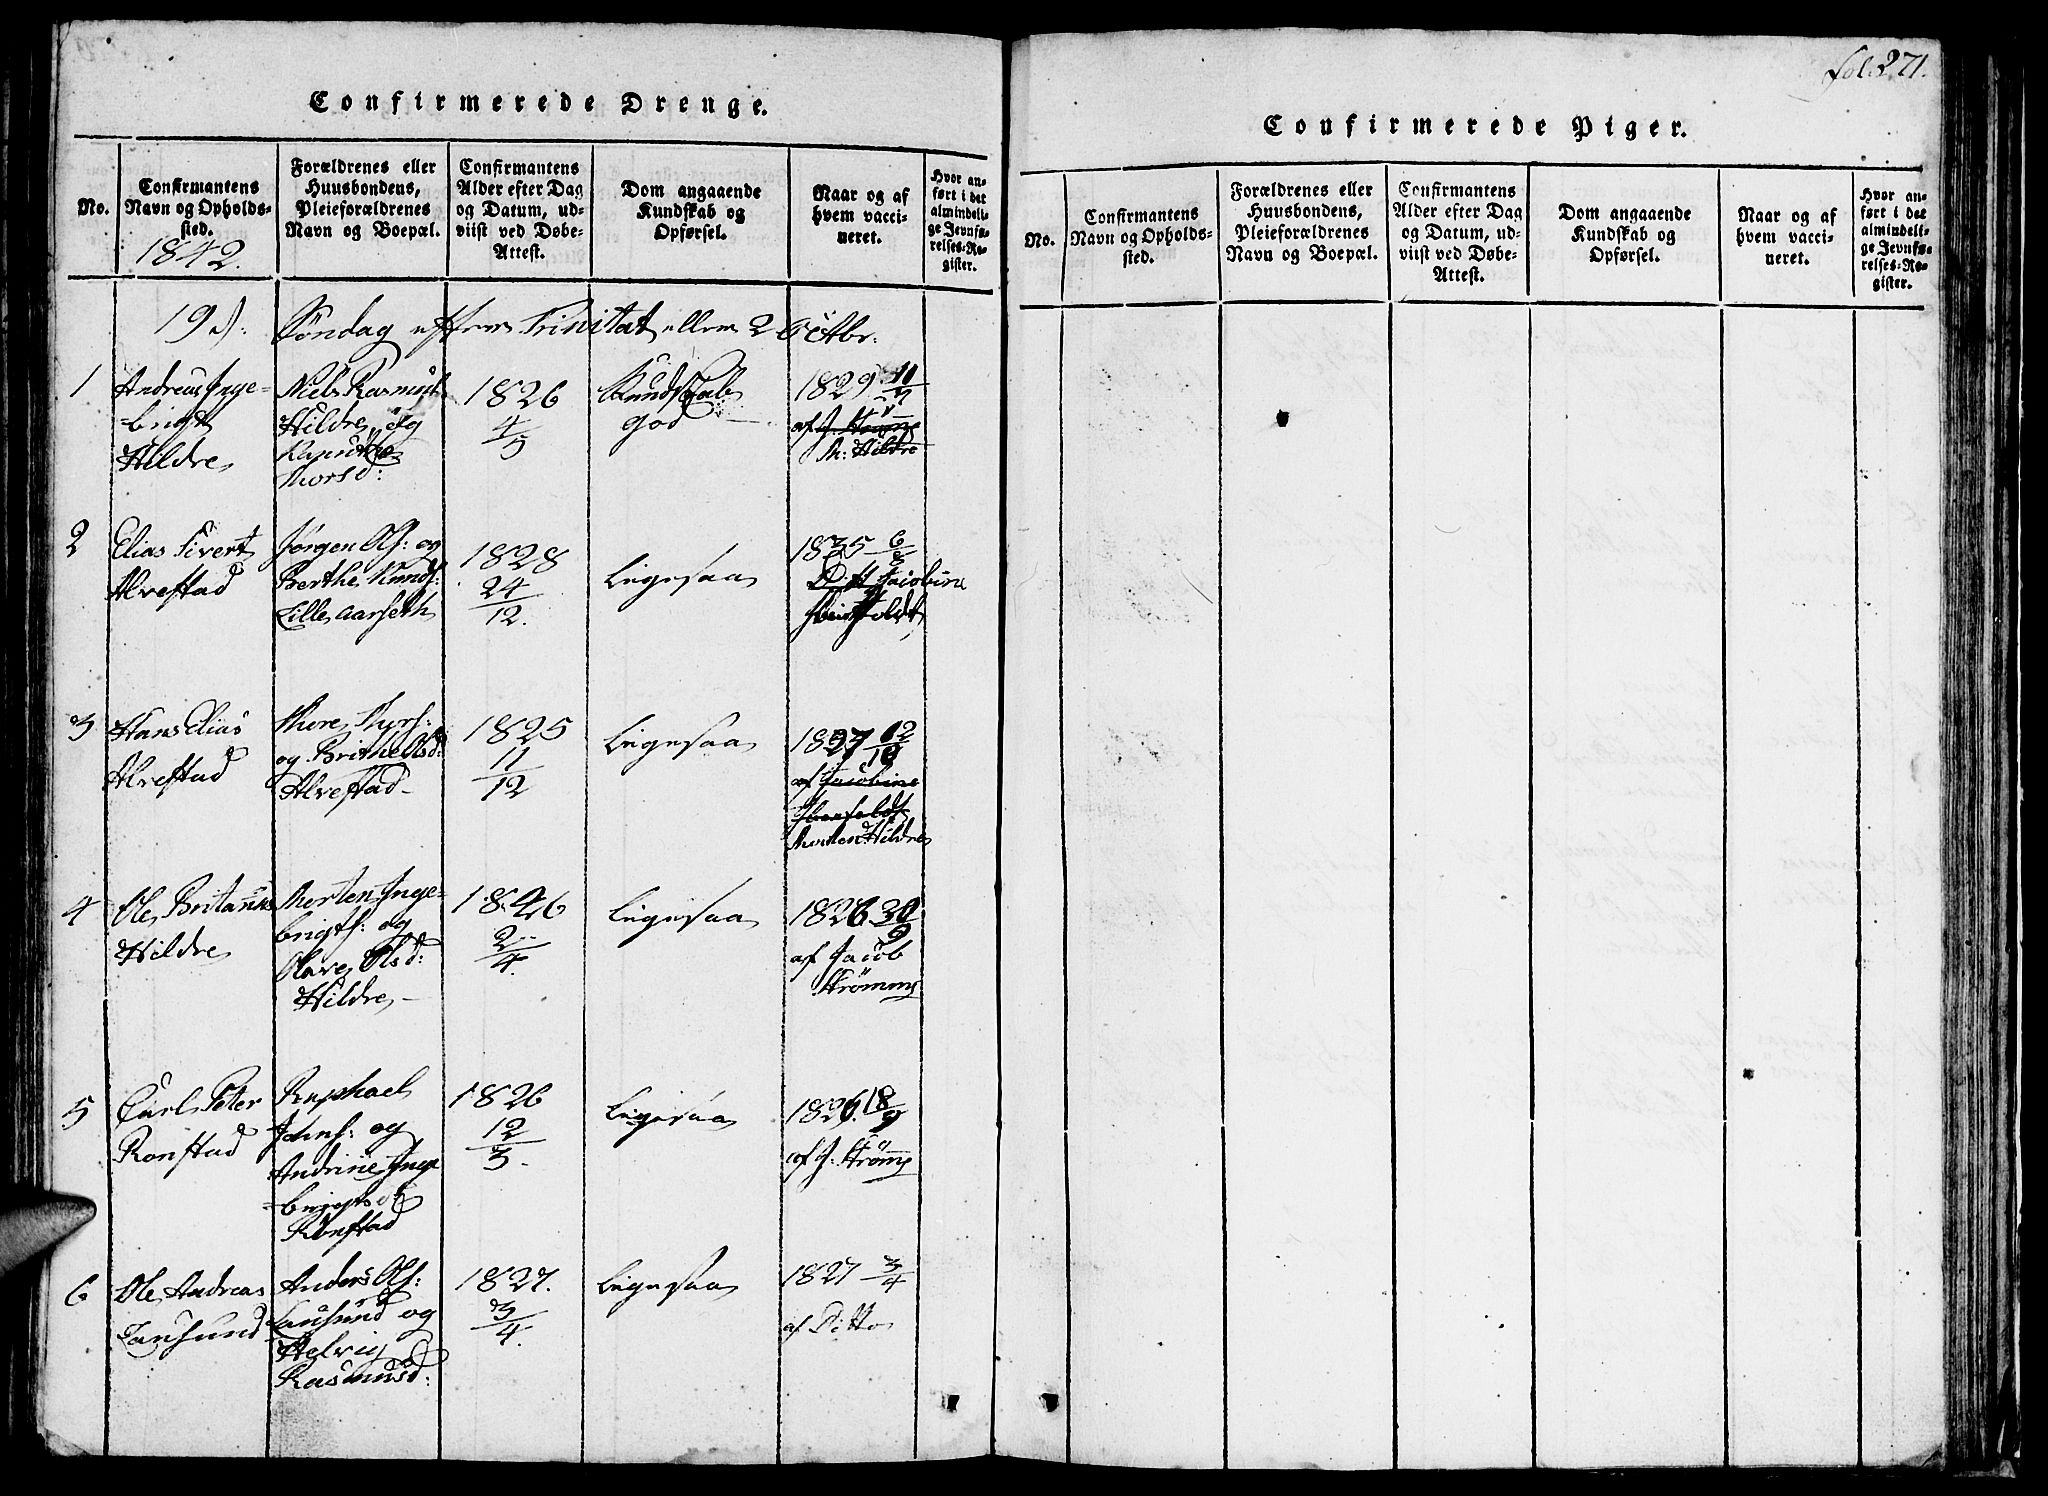 fol: 271.
Confirmerede Drenge.
No.
Confirmantens
Navn og Opholds-
sted.
1842.
Forældrenes eller
Huusbondens,
Pleieforældrenes
Navn og Boepæl.
Confirmantens
Alder efter Dag
og Datum, ud-
viist ved Døbe-
Attest.
Dom angaaende
Kundskab og
Opførsel.
Naar og af
hvem vacci-
neret.
Hvor an-
ført i det
almindeli-
ge Jevnfø-
relses-Re-
gister.
19 S: Søndag efter Trinitat eller 2 Octbr:
1
Andreas Inge-
-brigt
Hildre
Niels Rasmus
Hildre og
Thorsd:
1826
4/5
Kundskab
god
1829 11
af J. Strømme
M: Hildre
2
Elias Sivert
Alvestad
Jørgen Ols: og
Berthe Knuds:
Lille aarseth
1828
24/12.
Ligesaa
1835 6
Jacobine
3
Hans Elias
Alvestad
Thore Thors:
og Brithe Olsd:
Alvestad-
1825
11/12
Ligesaa
1827 12/10
af Jacobine
Morten Hildre
4
Ole Britanus
Hildre
Morten Inge-
brigts: og
Olave Olsd:
Hildre -
1826
2/4.
Ligesaa
1826 30/9
af Jacob
Strømme
5
Carl Peter
Rønstad
Raphael
Johns: og
Andrine Inge
-brigtsd:
Rønstad
1826
12/3.
Ligesaa
1826. 18/9
af J. Strømme
6
Ole Andreas
Lausund
Anders Ols:
Lausund og
Helvig
Rasmusd:
1827.
3/4.
Ligesaa
1827 3/4
af Ditto
Confirmerede Piger.
No.
Confirmantens
Navn og Opholds-
sted.
Forældrenes eller
Huusbondens,
Pleieforældrenes
Navn og Boepæl.
Confirmantens
Alder efter Dag
og Datum, ud-
viist ved Døbe-
Attest.
Dom angaaende
Kundskab og
Opførsel.
Naar og af
hvem vacci-
neret.
Hvor an-
ført i det
almindeli-
ge Jevnfø-
relses-Re-
gister.